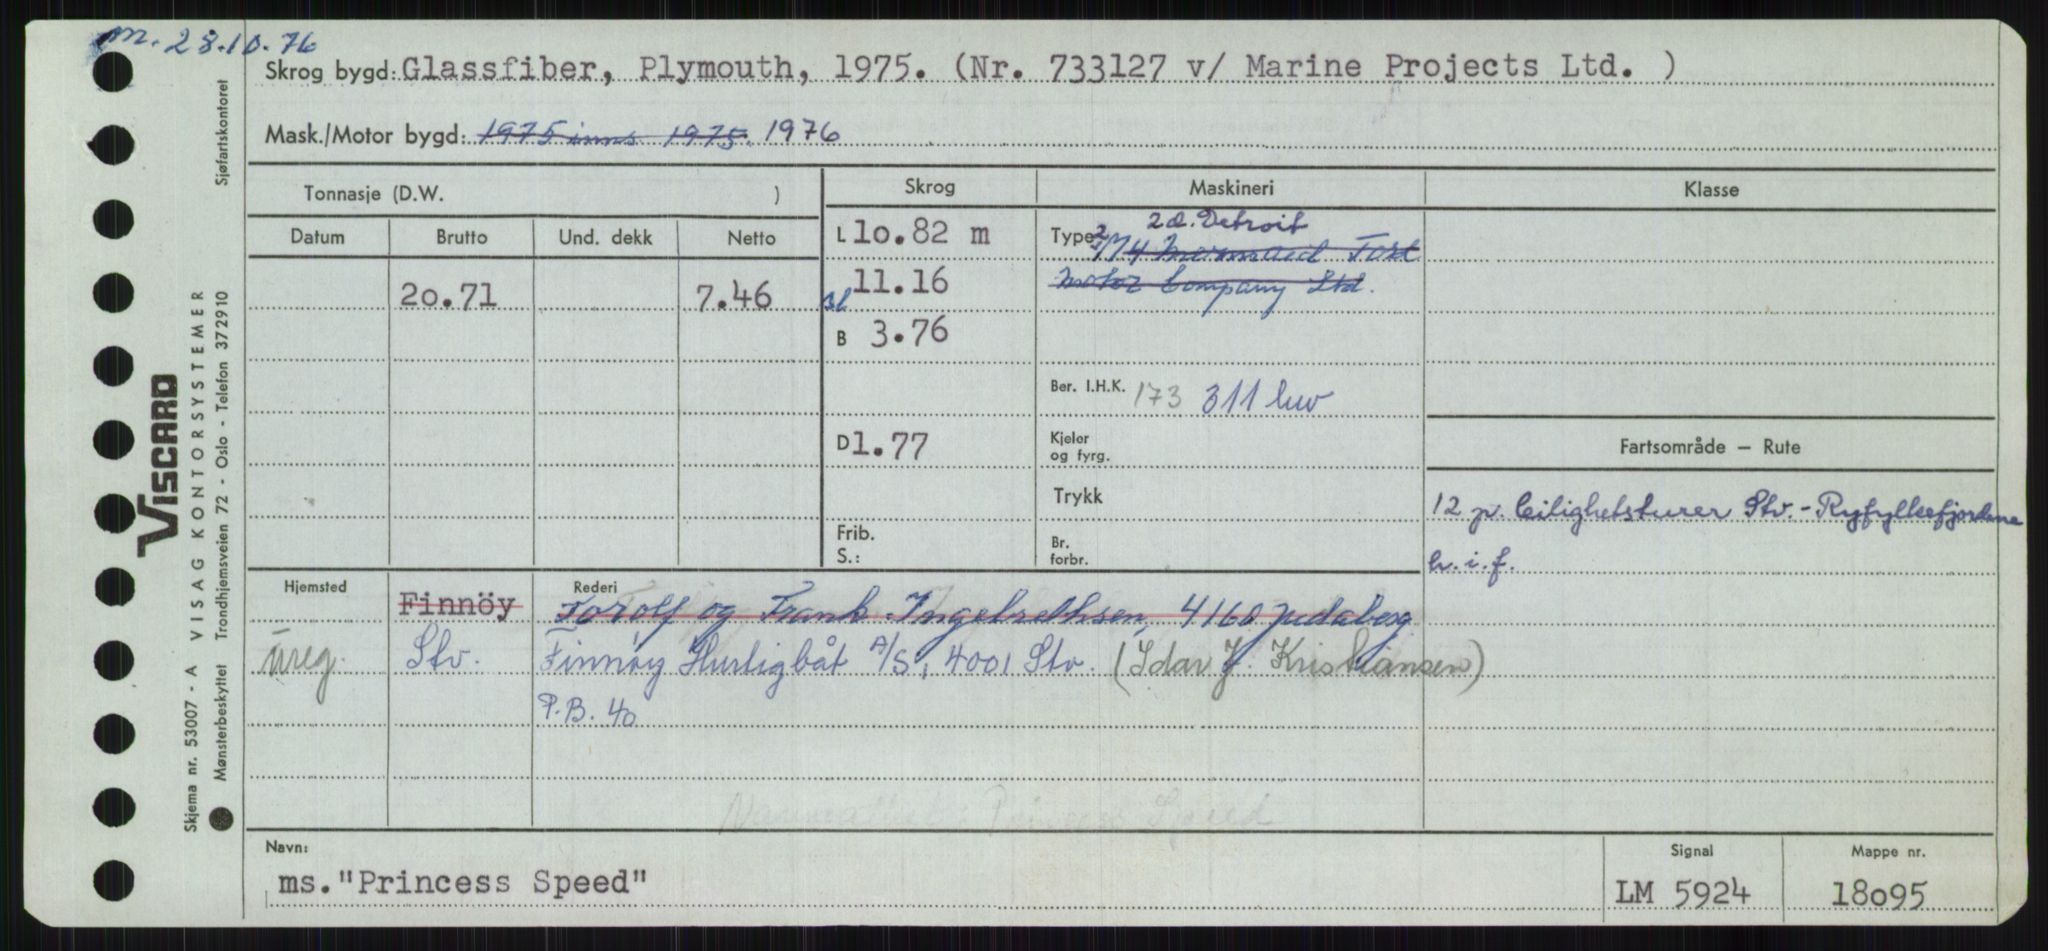 m. 28.10.76
Skrog bygd: Glassfiber, Plymouth, 1975. (Nr. 733127 v/ Marine Projects Ltd. )
Mask./Motor bygd: 1975 inns. 1975. 1976
Tonnasje (D.W. )
Skrog
Maskineri
Klasse
Datum
Brutto
Und. dekk
Netto
20.71
7.46
L 10.82 m
11.16
B 3.76
D 1.77
Frib.
S.:
2 d. Detroit
Type
Mermaid Ford
Motor Company Ltd.
Ber. I.H.K. 173 311 kw
Kjeler
og fyrg.
Trykk
Br.
forbr.
Fartsområde – Rute
12 p. Leilighetsturer Stv. - Ryfylkefjordene
h.i.f.
Hjemsted
Rederi
Finnöy Torolf og Frank Ingebrethsen, 4160 Judaberg
ureg. Stv. Finnøy Hurtigbåt A/S, 4001 Stv. (Idar J. Kristiansen)
P.B. 40
Princess Speed
Navn:
ms. "Princess Speed"
Signal
LM 5924
Mappe nr.
18095
VISCARD
Skjema nr. 53007 - A VISAG KONTORSYSTEMER
Mønsterbeskyttet Trondhjemsveien 72 - Oslo - Telefon 372910 Sjøfartskontoret